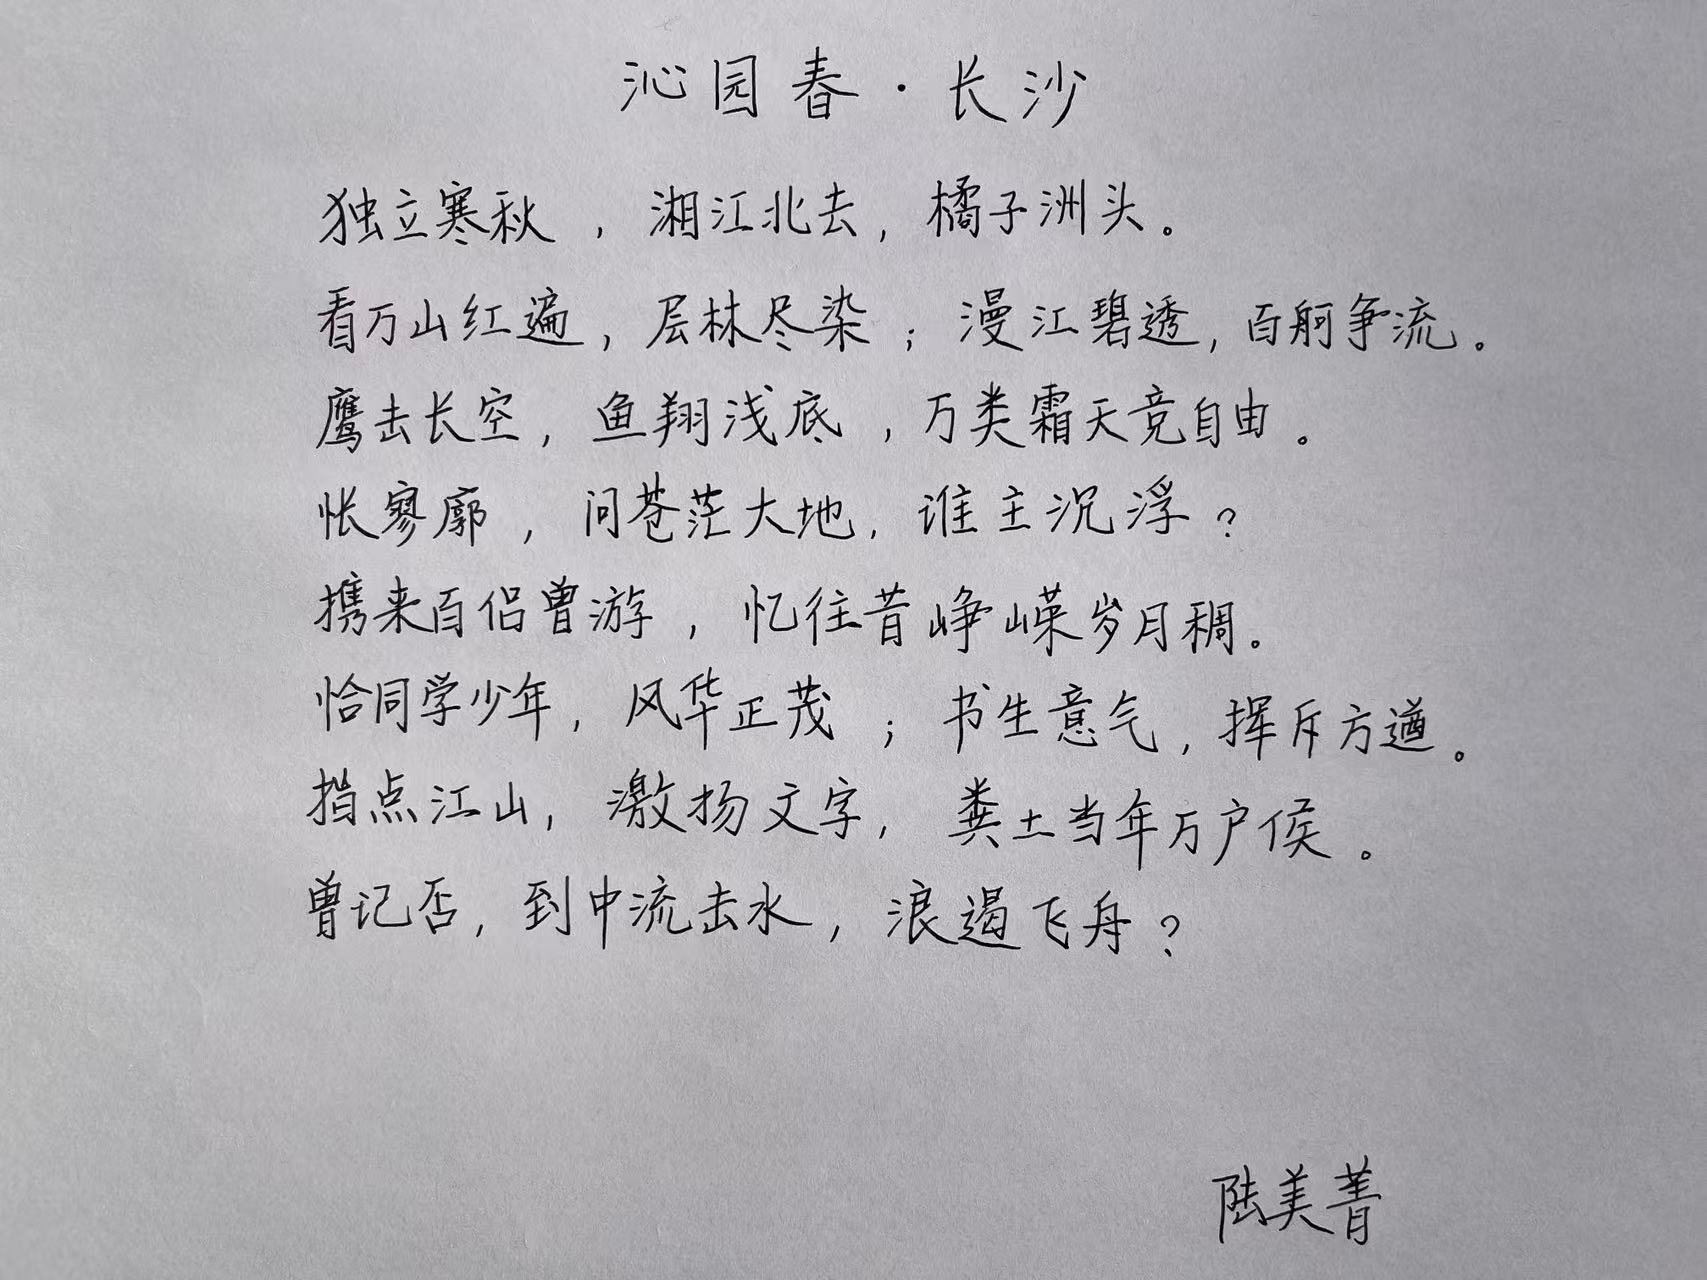 沁园春·长沙
独立寒秋，湘江北去，橘子洲头。
看万山红遍，层林尽染；漫江碧透，百舸争流。
鹰击长空，鱼翔浅底，万类霜天竞自由。
怅寥廓，问苍茫大地，谁主沉浮？
携来百侣曾游，忆往昔峥嵘岁月稠。
恰同学少年，风华正茂；书生意气，挥斥方遒。
指点江山，激扬文字，粪土当年万户侯。
曾记否，到中流击水，浪遏飞舟？
陆美菁